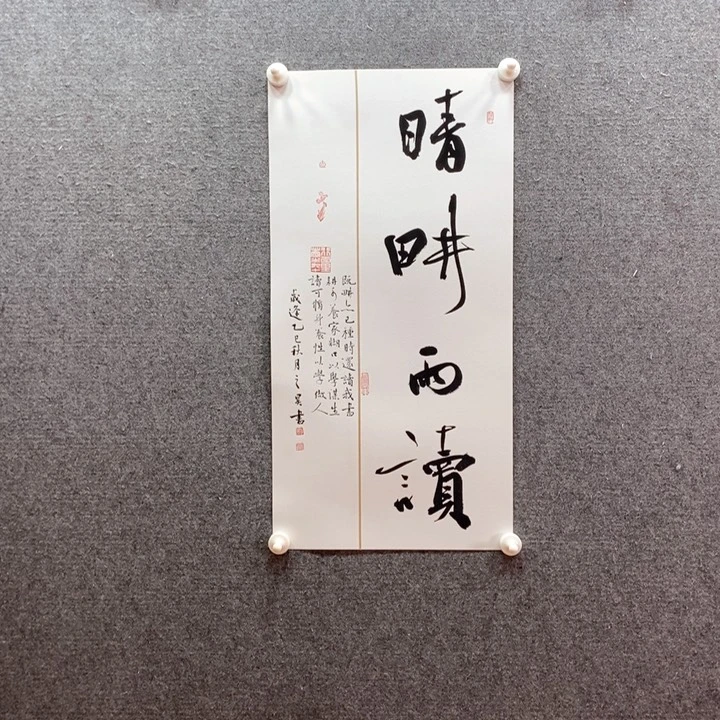 晴畊雨讀
既畊亦已種時還讀我書
耕可養家糊口以學謀生
讀可明升養性以學做人
歲逢乙巳秋月之吴書